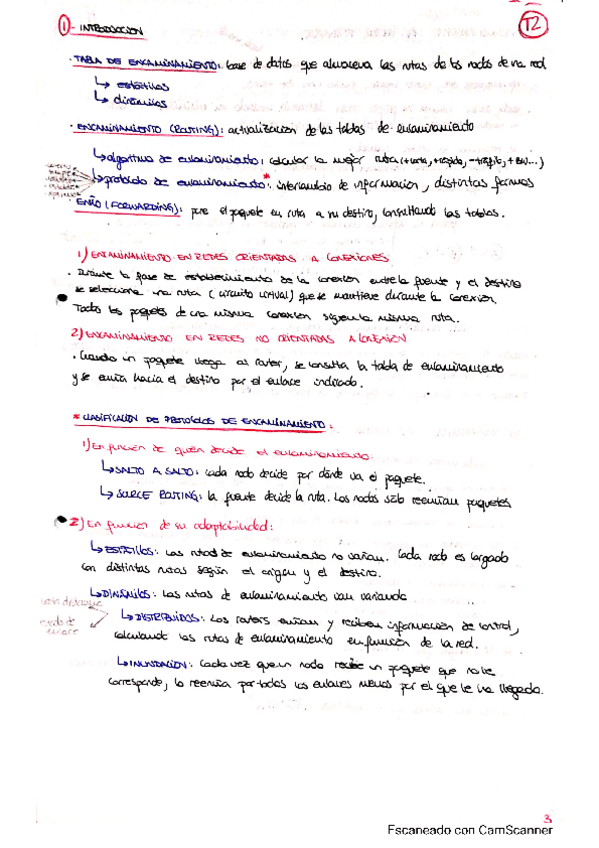 ① - INTRODUCCION
T2
· TABLA DE ENCAMINAMIENTO: base de datos que almacena las rutas de los nodos de una red
↳ estáticas
↳ dinámicas
· ENCAMINAMIENTO (ROUTING): actualización de las tablas de encaminamiento
↳ algoritmo de encaminamiento: calcular la mejor ruta (+corta, +rápida, -tráfico, +BW...)
↳ protocolo de encaminamiento*: intercambio de información, distintas formas
· ENVÍO (FORWARDING): pone el paquete en ruta a su destino, consultando las tablas.
1) ENCAMINAMIENTO EN REDES ORIENTADAS A CONEXIONES
· Durante la fase de establecimiento de la conexión entre la fuente y el destino
se selecciona una ruta (circuito virtual) que se mantiene durante la conexión.
Todos los paquetes de una misma conexión siguen la misma ruta.
2) ENCAMINAMIENTO EN REDES NO ORIENTADAS A CONEXIÓN
· Cuando un paquete llega al router, se consulta la tabla de encaminamiento
y se envía hacia el destino por el enlace indicado.
* CLASIFICACIÓN DE PROTOCOLOS DE ENCAMINAMIENTO:
1) En función de quién decide el encaminamiento:
↳ SALTO A SALTO: cada nodo decide por dónde va el paquete.
↳ SOURCE ROUTING: la fuente decide la ruta. Los nodos solo reenvían paquetes
2) En función de su adaptabilidad:
↳ ESTÁTICOS: Las rutas de encaminamiento no varían. Cada nodo es cargado
con distintas rutas según el origen y el destino.
↳ DINÁMICOS: Las rutas de encaminamiento van variando
vector distancia
estado de enlace
↳ DISTRIBUIDOS: Los routers envían y reciben información de control,
calculando las rutas de encaminamiento en función de la red.
↳ INUNDACIÓN: Cada vez que un nodo recibe un paquete que no le
corresponde, lo reenvía por todos los enlaces menos por el que le ha llegado.
3
Escaneado con CamScanner